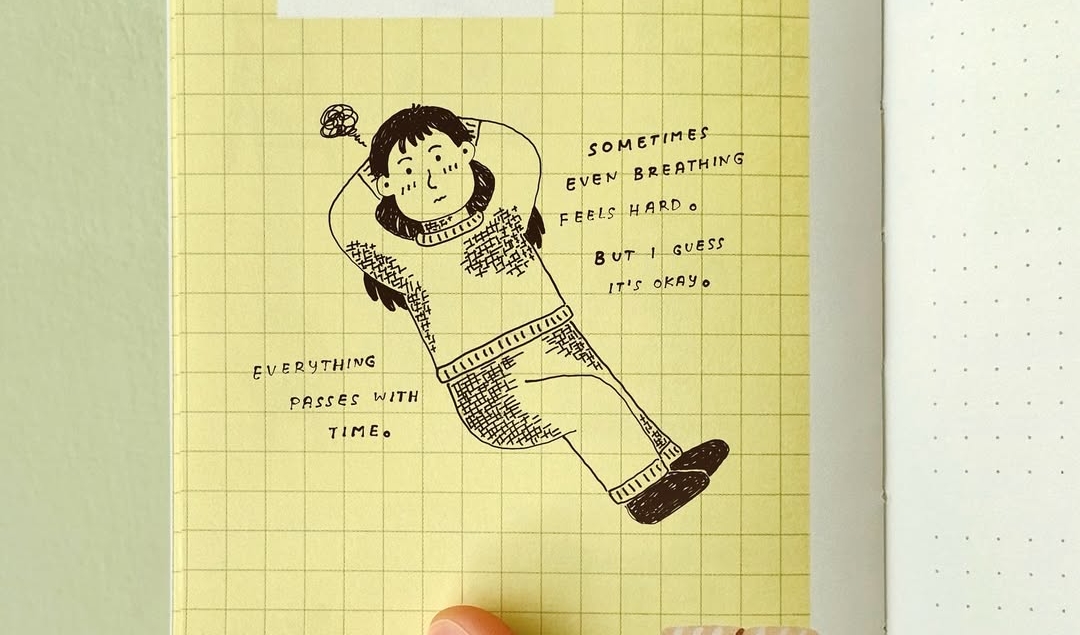 SOMETIMES
EVEN BREATHING
FEELS HARD.
BUT I GUESS
IT'S OKAY.
EVERYTHING
PASSES WITH
TIME.